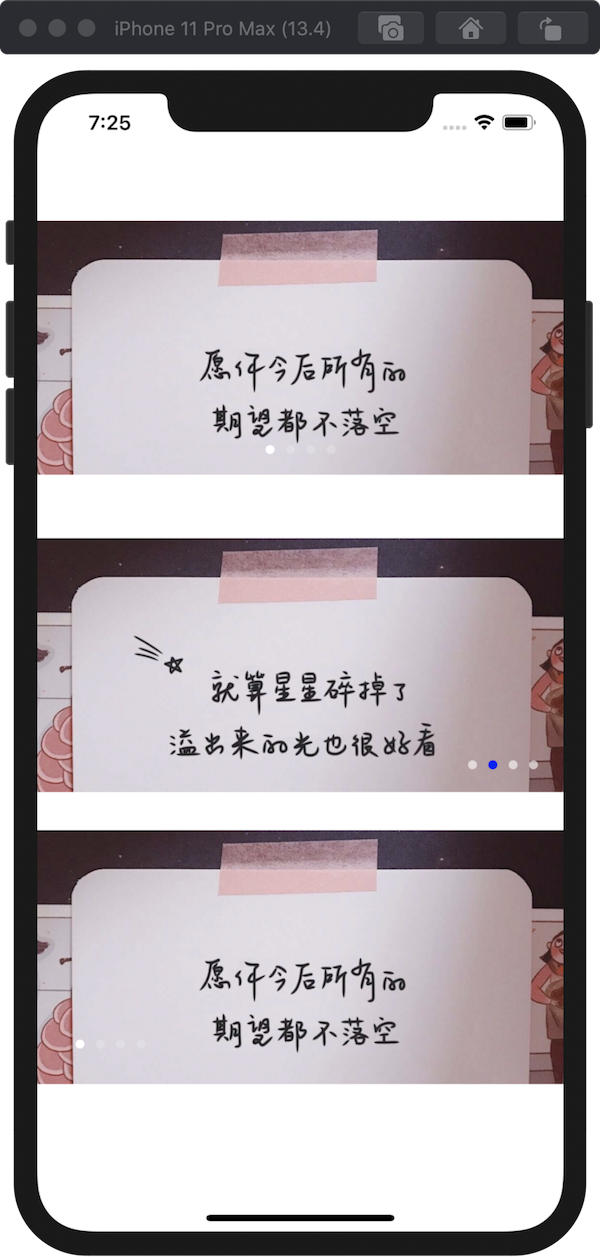 iPhone 11 Pro Max (13.4)
7:25
愿你今后所有的
期望都不落空
就算星星碎掉了
溢出来的光也很好看
愿你今后所有的
期望都不落空